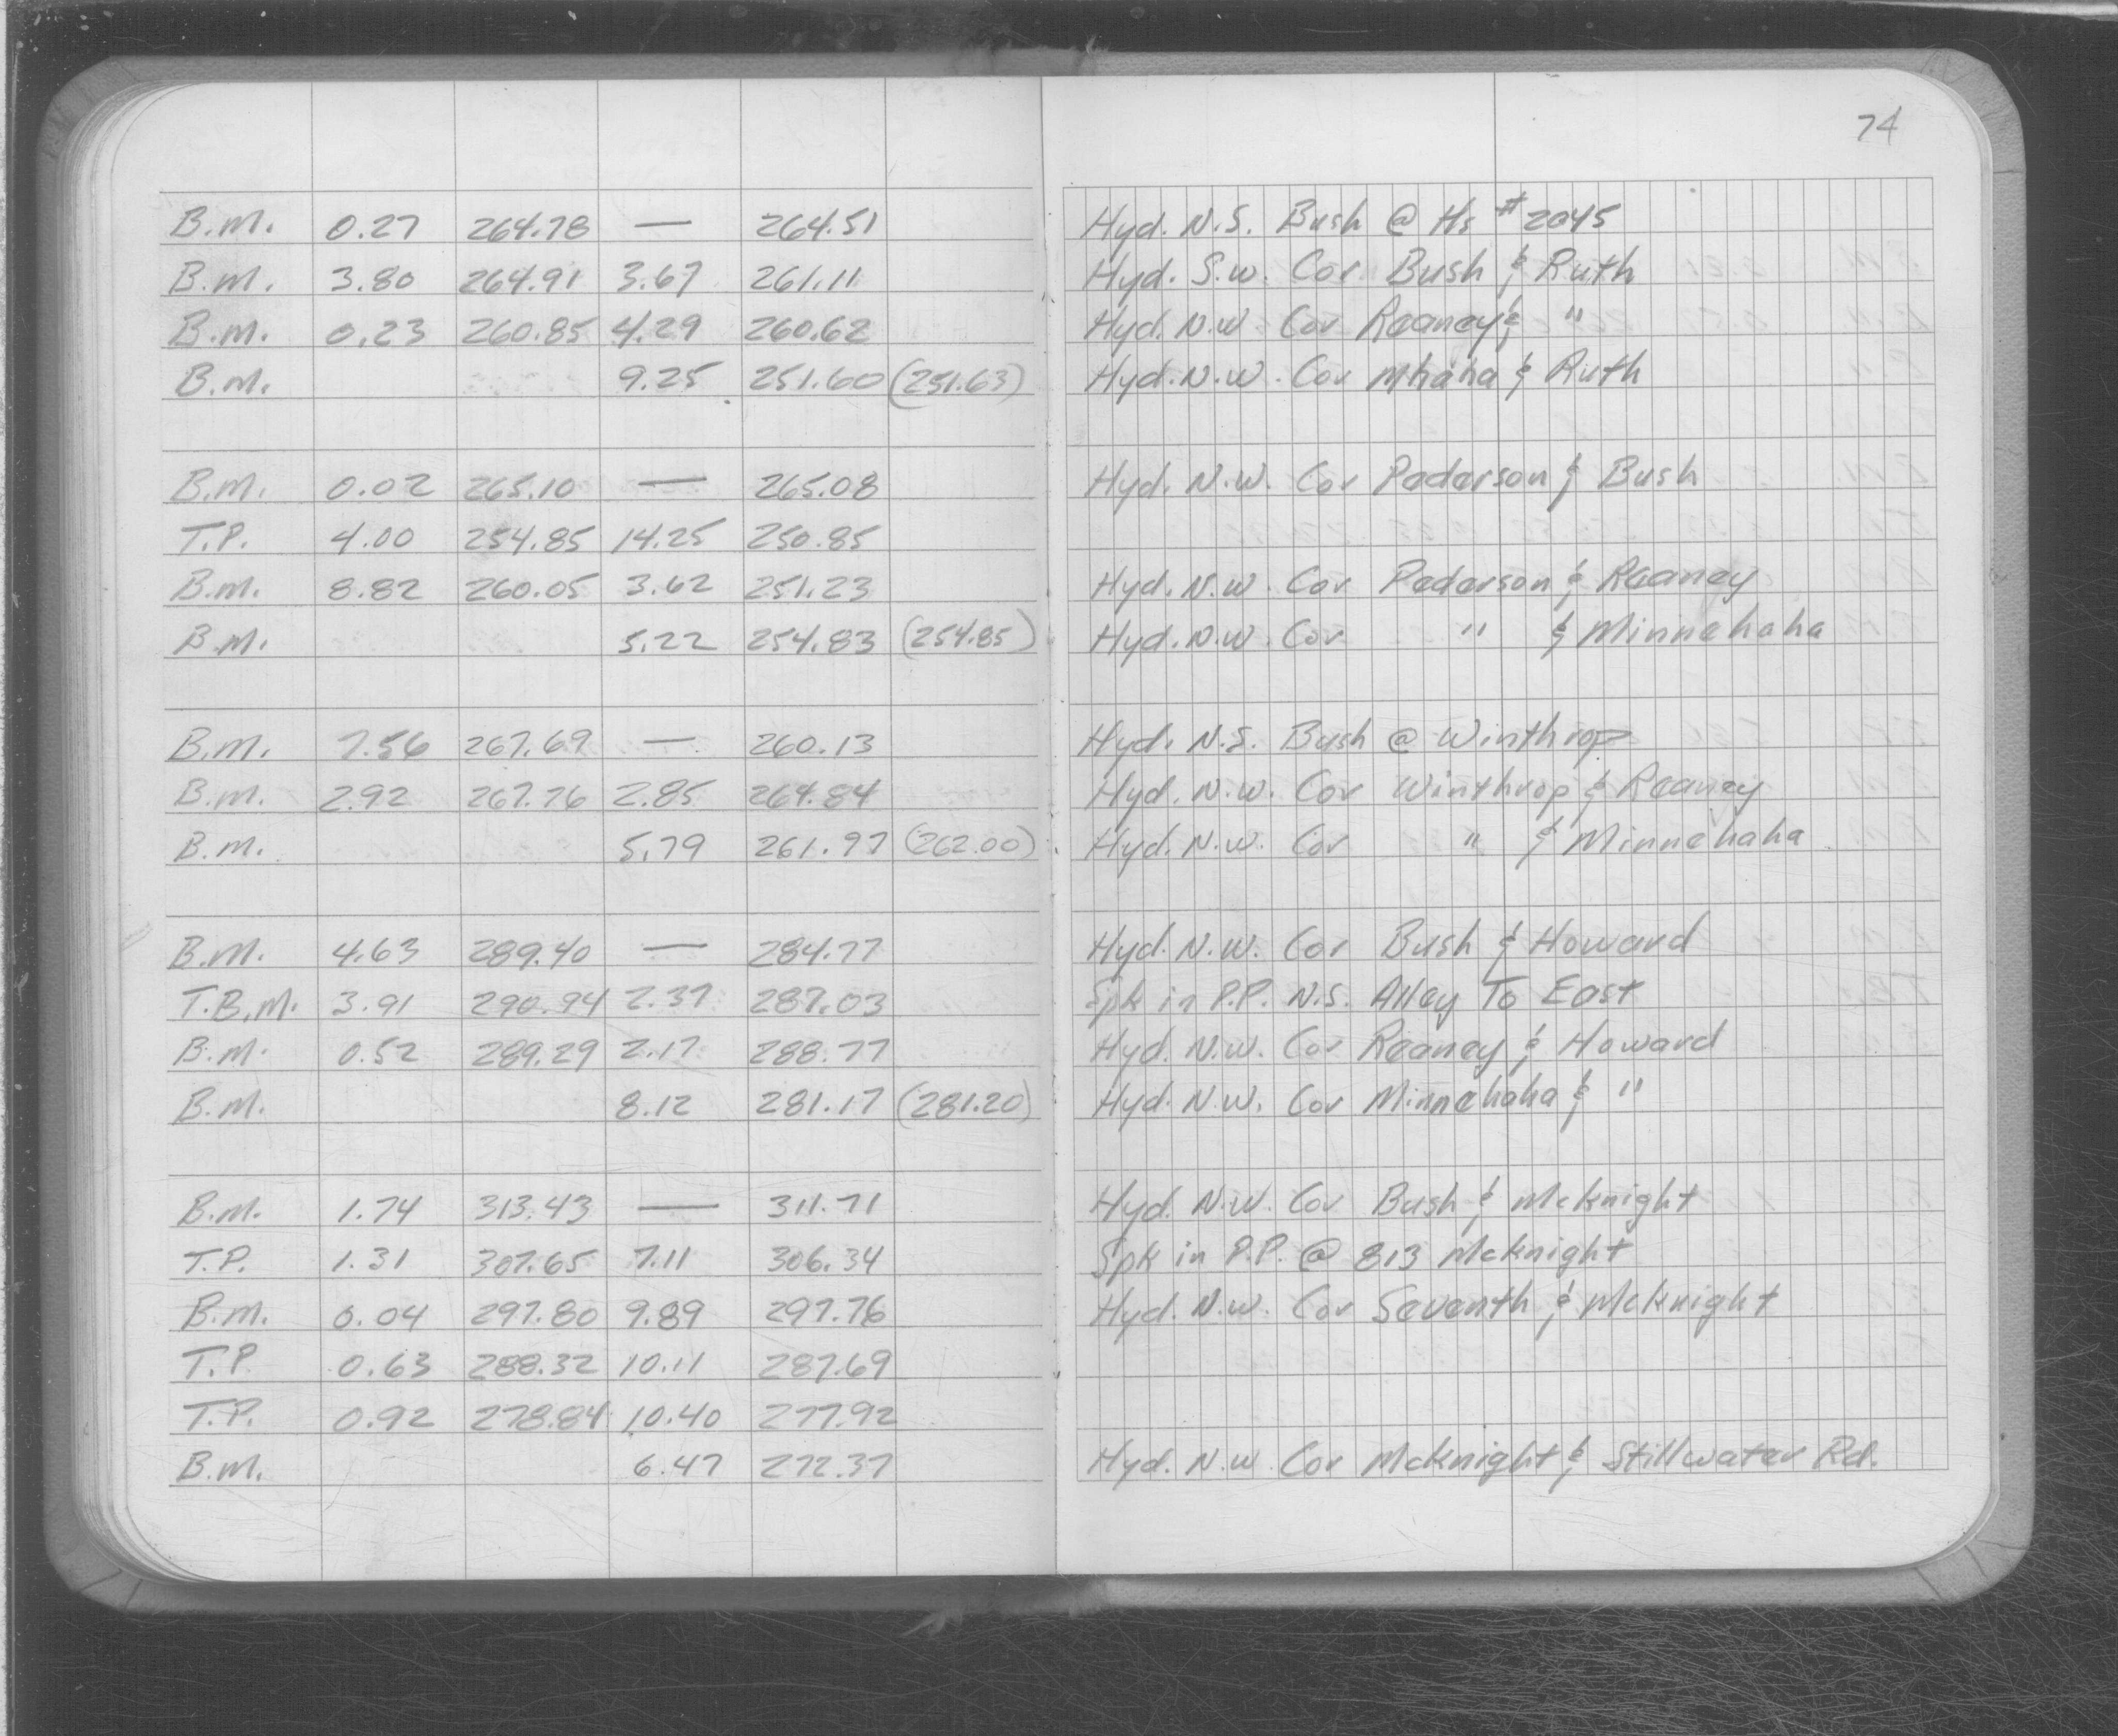 74
B.M. 0.27 264.78 — 264.51 Hyd. N.S. Bush @ Hs # 2045
B.M. 3.80 264.91 3.67 261.11 Hyd. S.W. Cor. Bush & Ruth
B.M. 0.23 260.85 4.29 260.62 Hyd. N.W. Cor Reaney & "
B.M. 9.25 251.60 (251.63) Hyd. N.W. Cor Mhaha & Ruth
B.M. 0.02 265.10 — 265.08 Hyd. N.W. Cor Pederson & Bush
T.P. 4.00 254.85 14.25 250.85
B.M. 8.82 260.05 3.62 251.23 Hyd. N.W. Cor Pederson & Reaney
B.M. 5.22 254.83 (254.85) Hyd. N.W. Cor " & Minnehaha
B.M. 7.56 267.69 — 260.13 Hyd. N.S. Bush @ Winthrop
B.M. 2.92 267.76 2.85 264.84 Hyd. N.W. Cor Winthrop & Reaney
B.M. 5.79 261.97 (262.00) Hyd. N.W. Cor " & Minnehaha
B.M. 4.63 289.40 — 284.77 Hyd. N.W. Cor Bush & Howard
T.B.M. 3.91 290.94 2.37 287.03 Spk in P.P. N.S. Alley To East
B.M. 0.52 289.29 2.17 288.77 Hyd. N.W. Cor Reaney & Howard
B.M. 8.12 281.17 (281.20) Hyd. N.W. Cor Minnehaha & "
B.M. 1.74 313.43 — 311.71 Hyd. N.W. Cor Bush & McKnight
T.P. 1.31 307.65 7.11 306.34 Spk in P.P. @ 813 McKnight
B.M. 0.04 297.80 9.89 297.76 Hyd. N.W. Cor Seventh & McKnight
T.P. 0.63 288.32 10.11 287.69
T.P. 0.92 278.84 10.40 277.92
B.M. 6.47 272.37 Hyd. N.W. Cor McKnight & Stillwater Rd.